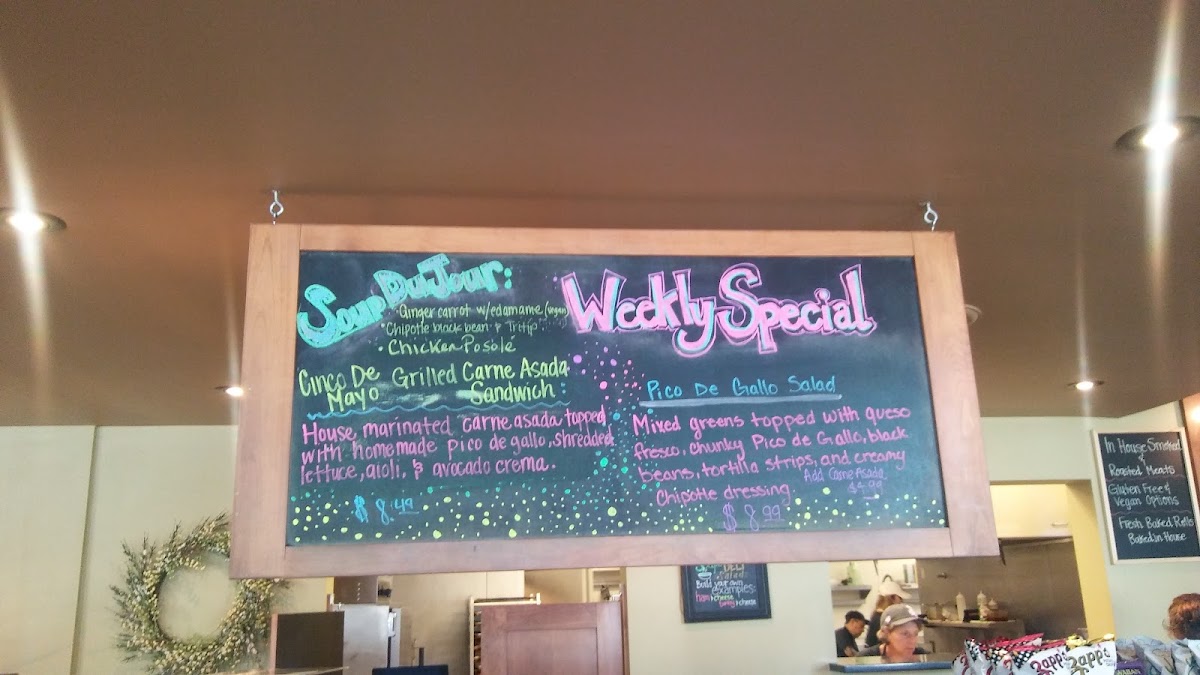 Soup Du Jour:
• Ginger carrot w/edamame (vegan)
• Chipotle black bean & Tritip
• Chicken Posole
Cinco De Mayo
Grilled Carne Asada
Sandwich:
House marinated carne asada topped
with homemade pico de gallo, shredded
lettuce, aioli, & avocado crema.
$8.49
Weekly Special
Pico De Gallo Salad
Mixed greens topped with queso
fresco, chunky Pico de Gallo, black
beans, tortilla strips, and creamy
Chipotle dressing
Add Carne Asada
$8.99
In House Smoked
&
Roasted Meats
Gluten Free &
Vegan Options
Fresh Baked Rolls
Baked In House
Build your own
examples:
ham & cheese
turkey & cheese
Zapp's
Zapp's